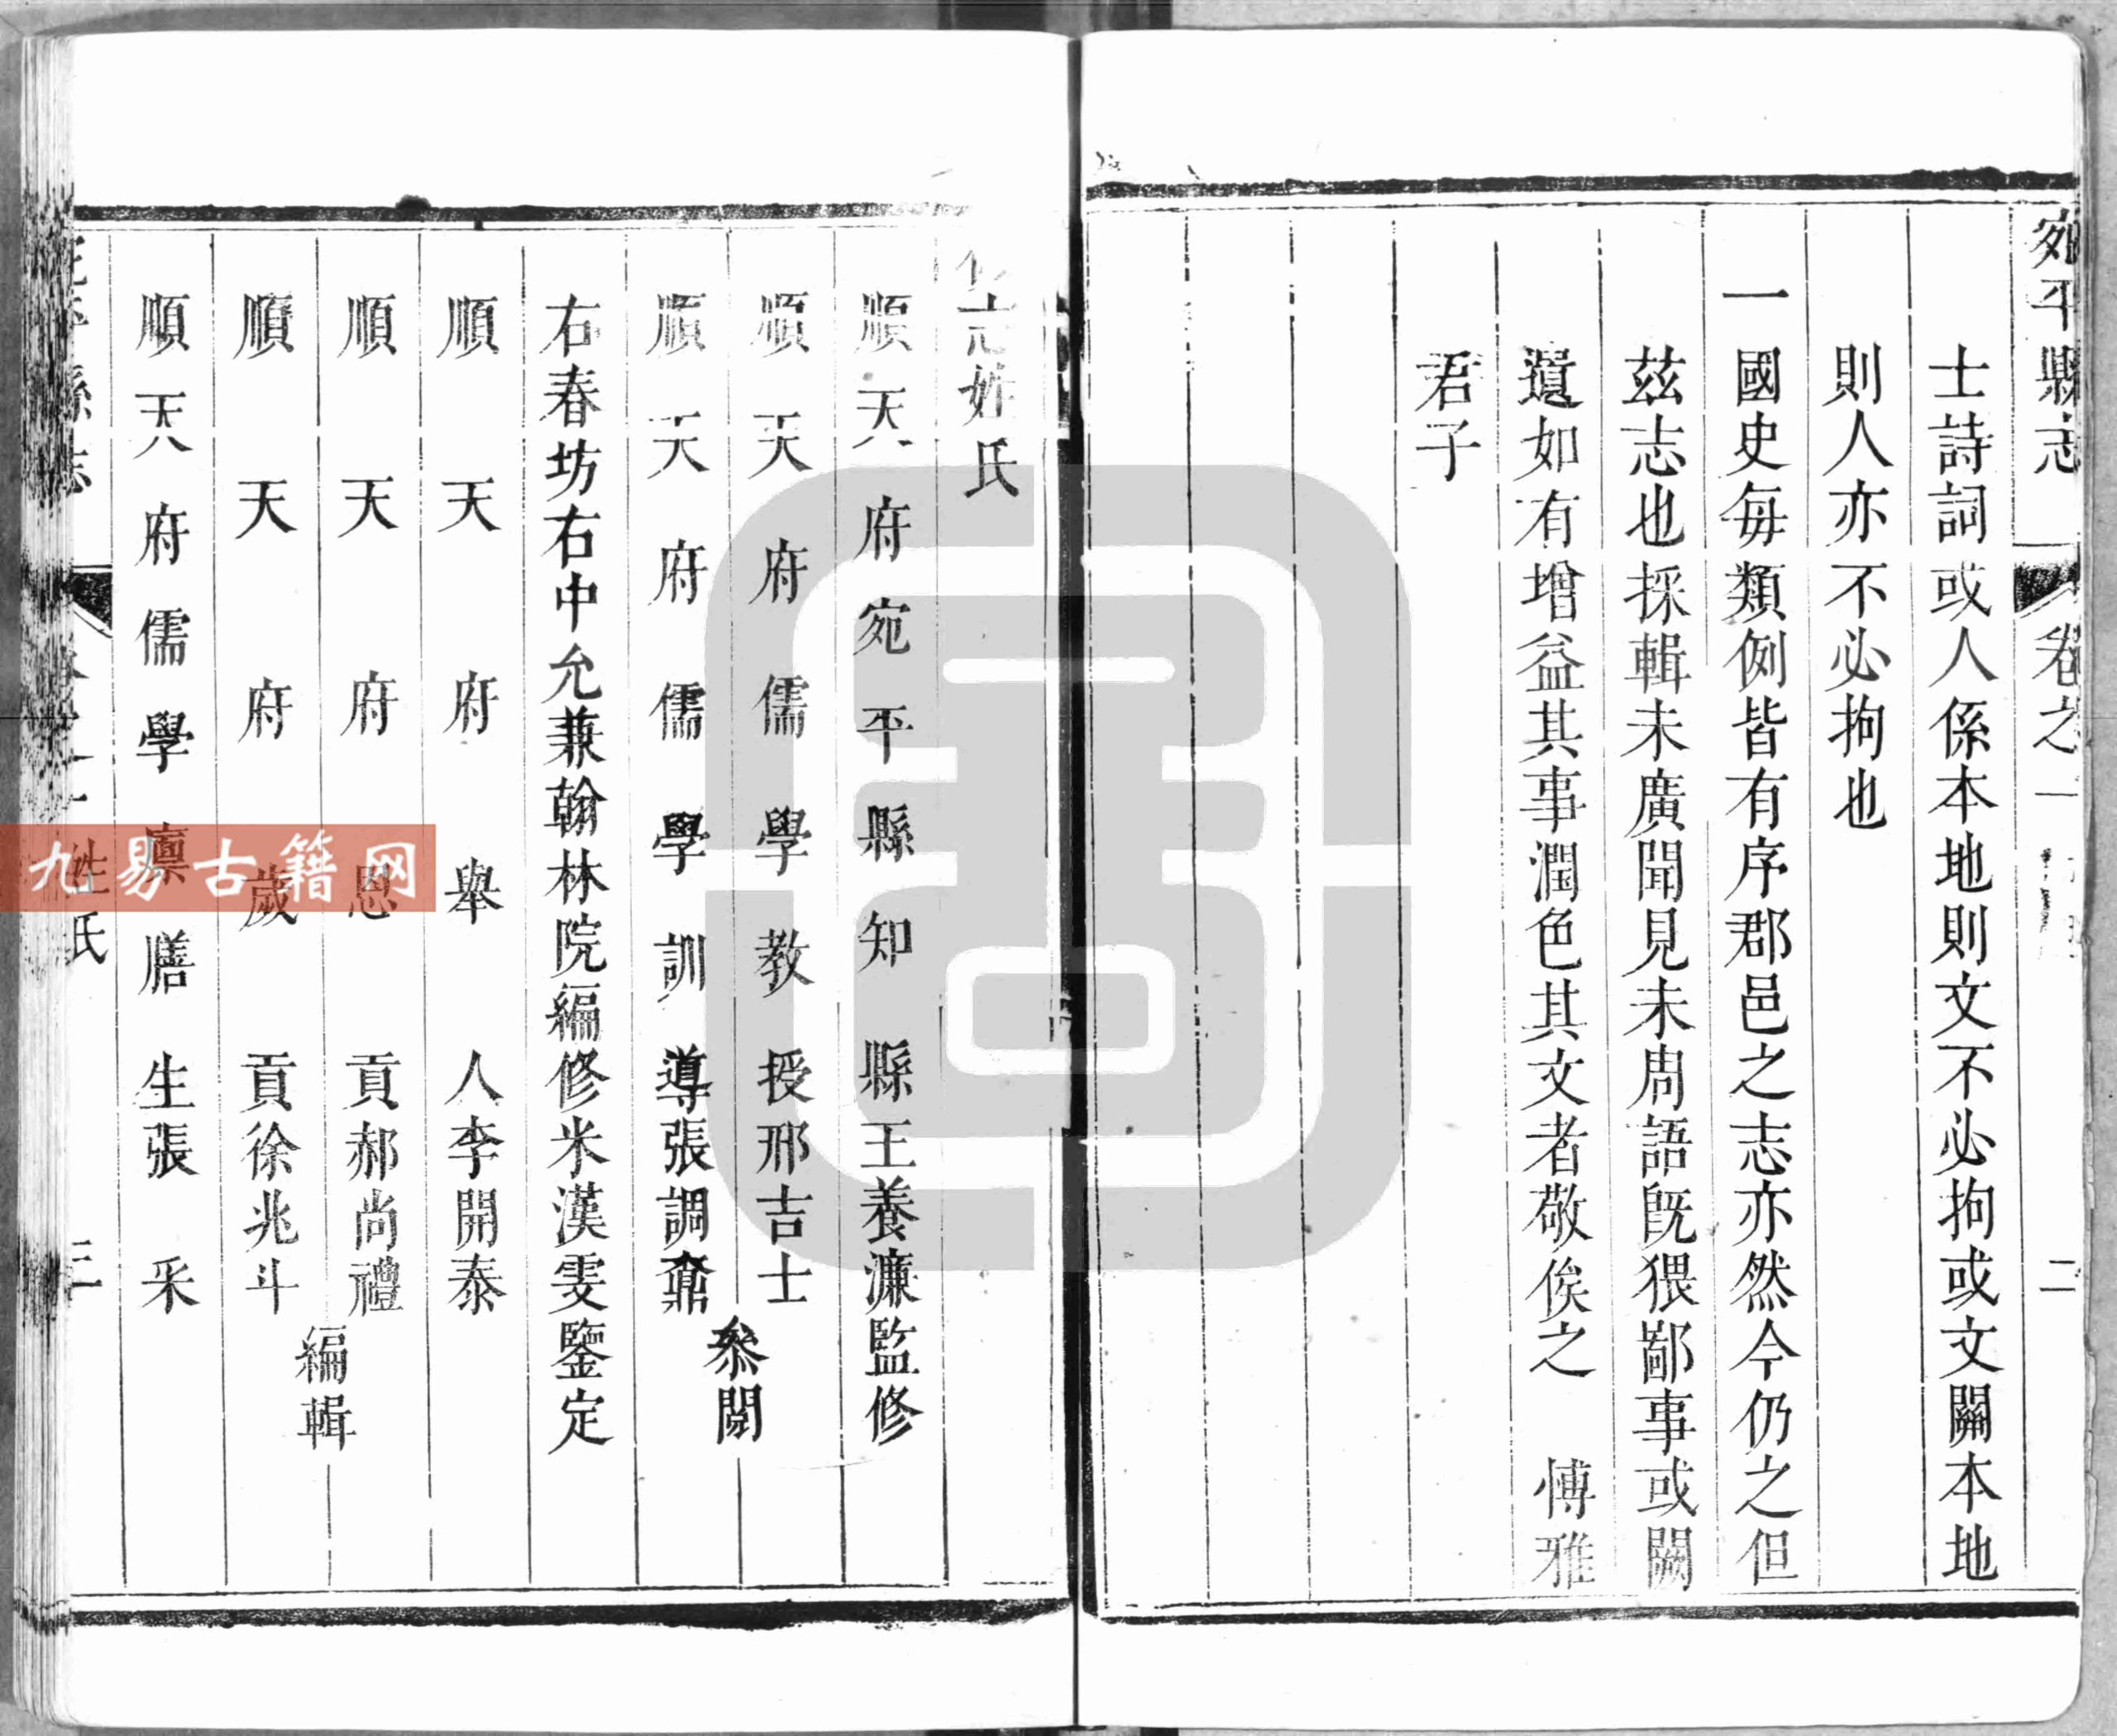 宛平縣志 卷之一 二
士詩詞或人係本地則文不必拘或文關本地
則人亦不必拘也
一國史每類例皆有序郡邑之志亦然今仍之但
茲志也採輯未廣聞見未周語既猥鄙事或闕
遺如有增益其事潤色其文者敬俟之 博雅
君子
修志姓氏
順天府宛平縣知縣王養濂監修
順天府儒學教授邢吉士
順天府儒學訓導張調鼐
參閱
右春坊右中允兼翰林院編修米漢雯鑒定
順天府舉人李開泰
順天府恩貢郝尚禮
順天府歲貢徐兆斗
編輯
順天府儒學廩膳生張采
縣志 姓氏 三
九易古籍网